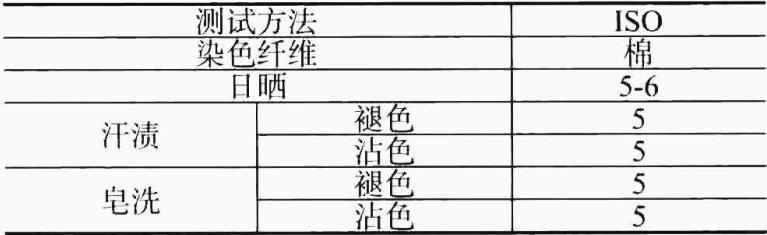 测试方法 ISO
染色纤维 棉
日晒 5-6
汗渍 褪色 5
沾色 5
皂洗 褪色 5
沾色 5